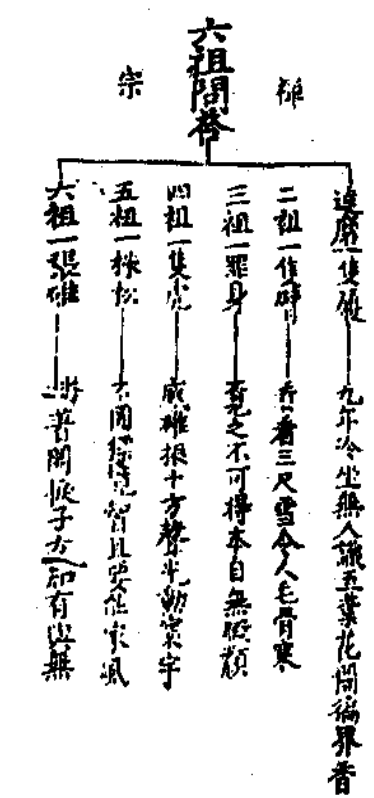 禪宗
六祖問答
達磨一隻履
九年冷坐無人識五葉花開徧界香
二祖一隻臂
看看三尺雪令人毛骨寒
三祖一罪身
覓之不可得本自無瑕纇
四祖一隻虎
威雄振十方聲光動寰宇
五祖一株松
不圖標境智且要壯家風
六祖一張碓
踏著關棙子方知有與無